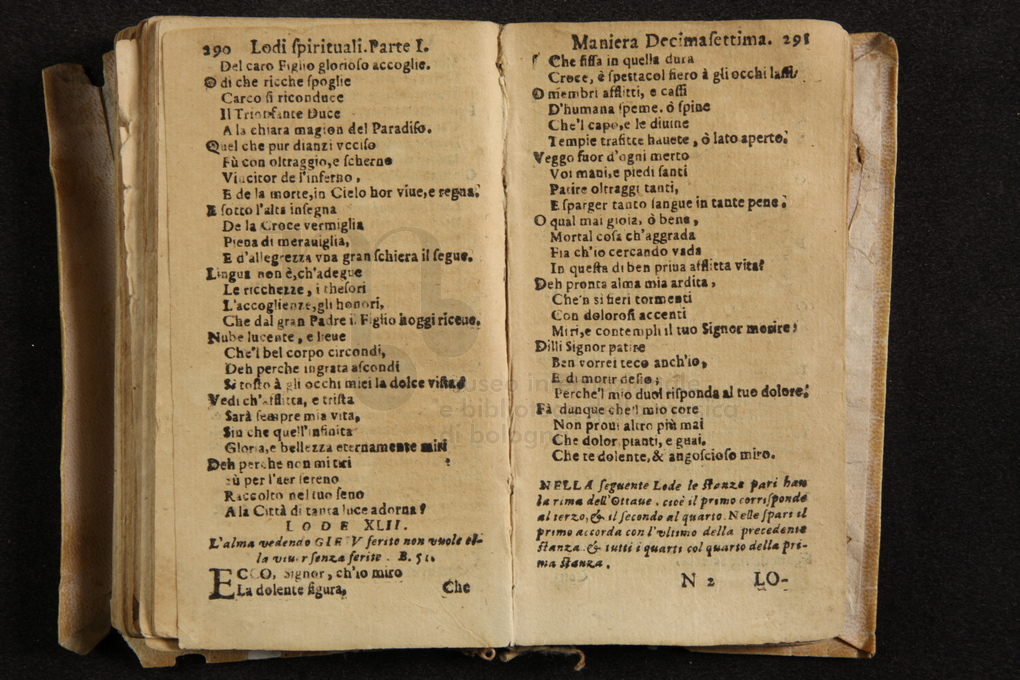 290 Lodi ſpirituali. Parte I.
Del caro Figlio glorioſo accoglie.
O di che ricche ſpoglie
Carco ſi riconduce
Il Trionfante Duce
A la chiara magion del Paradiſo.
Quel che pur dianzi vcciſo
Fù con oltraggio, e ſcherno
Vincitor de l'inferno,
E de la morte, in Cielo hor viue, e regna.
E ſotto l'alta inſegna
De la Croce vermiglia
Piena di merauiglia,
E d'allegrezza vna gran ſchiera il ſegue.
Lingua non è, ch'adegue
Le ricchezze, i theſori
L'accoglienze, gli honori,
Che dal gran Padre il Figlio hoggi riceue.
Nube lucente, e lieue
Che'l bel corpo circondi,
Deh perche ingrata aſcondi
Si toſto à gli occhi miei la dolce viſta?
Vedi ch'afflitta, e triſta
Sarà ſempre mia vita,
Sin che quell'infinita
Gloria, e bellezza eternamente miri
Deh perche non mi tiri
sù per l'aer ſereno
Raccolto nel tuo ſeno
A la Città di tanta luce adorna?
LODE XLII.
L'alma vedendo GIESV ferito non vuole el-
la viuer ſenza ferite. B. 51.
ECCO, Signor, ch'io miro
La dolente figura, Che
Maniera Decimaſettima. 291
Che fiſſa in quella dura
Croce, è ſpettacol fiero à gli occhi laſſi.
O membri afflitti, e caſſi
D'humana ſpeme, ò ſpine
Che'l capo, e le diuine
Tempie trafitte hauete, ò lato aperto.
Veggo fuor d'ogni merto
Voi mani, e piedi ſanti
Patire oltraggi tanti,
E ſparger tanto ſangue in tante pene.
O qual mai gioia, ò bene,
Mortal coſa ch'aggrada
Fia ch'io cercando vada
In queſta di ben priua afflitta vita?
Deh pronta alma mia ardita,
Che'n si fieri tormenti
Con doloroſi accenti
Miri, e contempli il tuo Signor morire:
Dilli Signor patire
Ben vorrei teco anch'io,
E di morir deſio;
Perche'l mio duol riſponda al tuo dolore.
Fà dunque che'l mio core
Non proui altro più mai
Che dolor, pianti, e guai,
Che te dolente, & angoſcioſo miro.
NELLA ſeguente Lode le ſtanze pari han
la rima dell'Ottaue. cioè il primo corriſponde
al terzo, & il ſecondo al quarto. Nelle ſpari il
primo accorda con l'vltimo della precedente
ſtanza. & tutti i quarti col quarto della pri-
ma ſtanza.
N 2 LO-
museo in
e biblio ca
di bologn